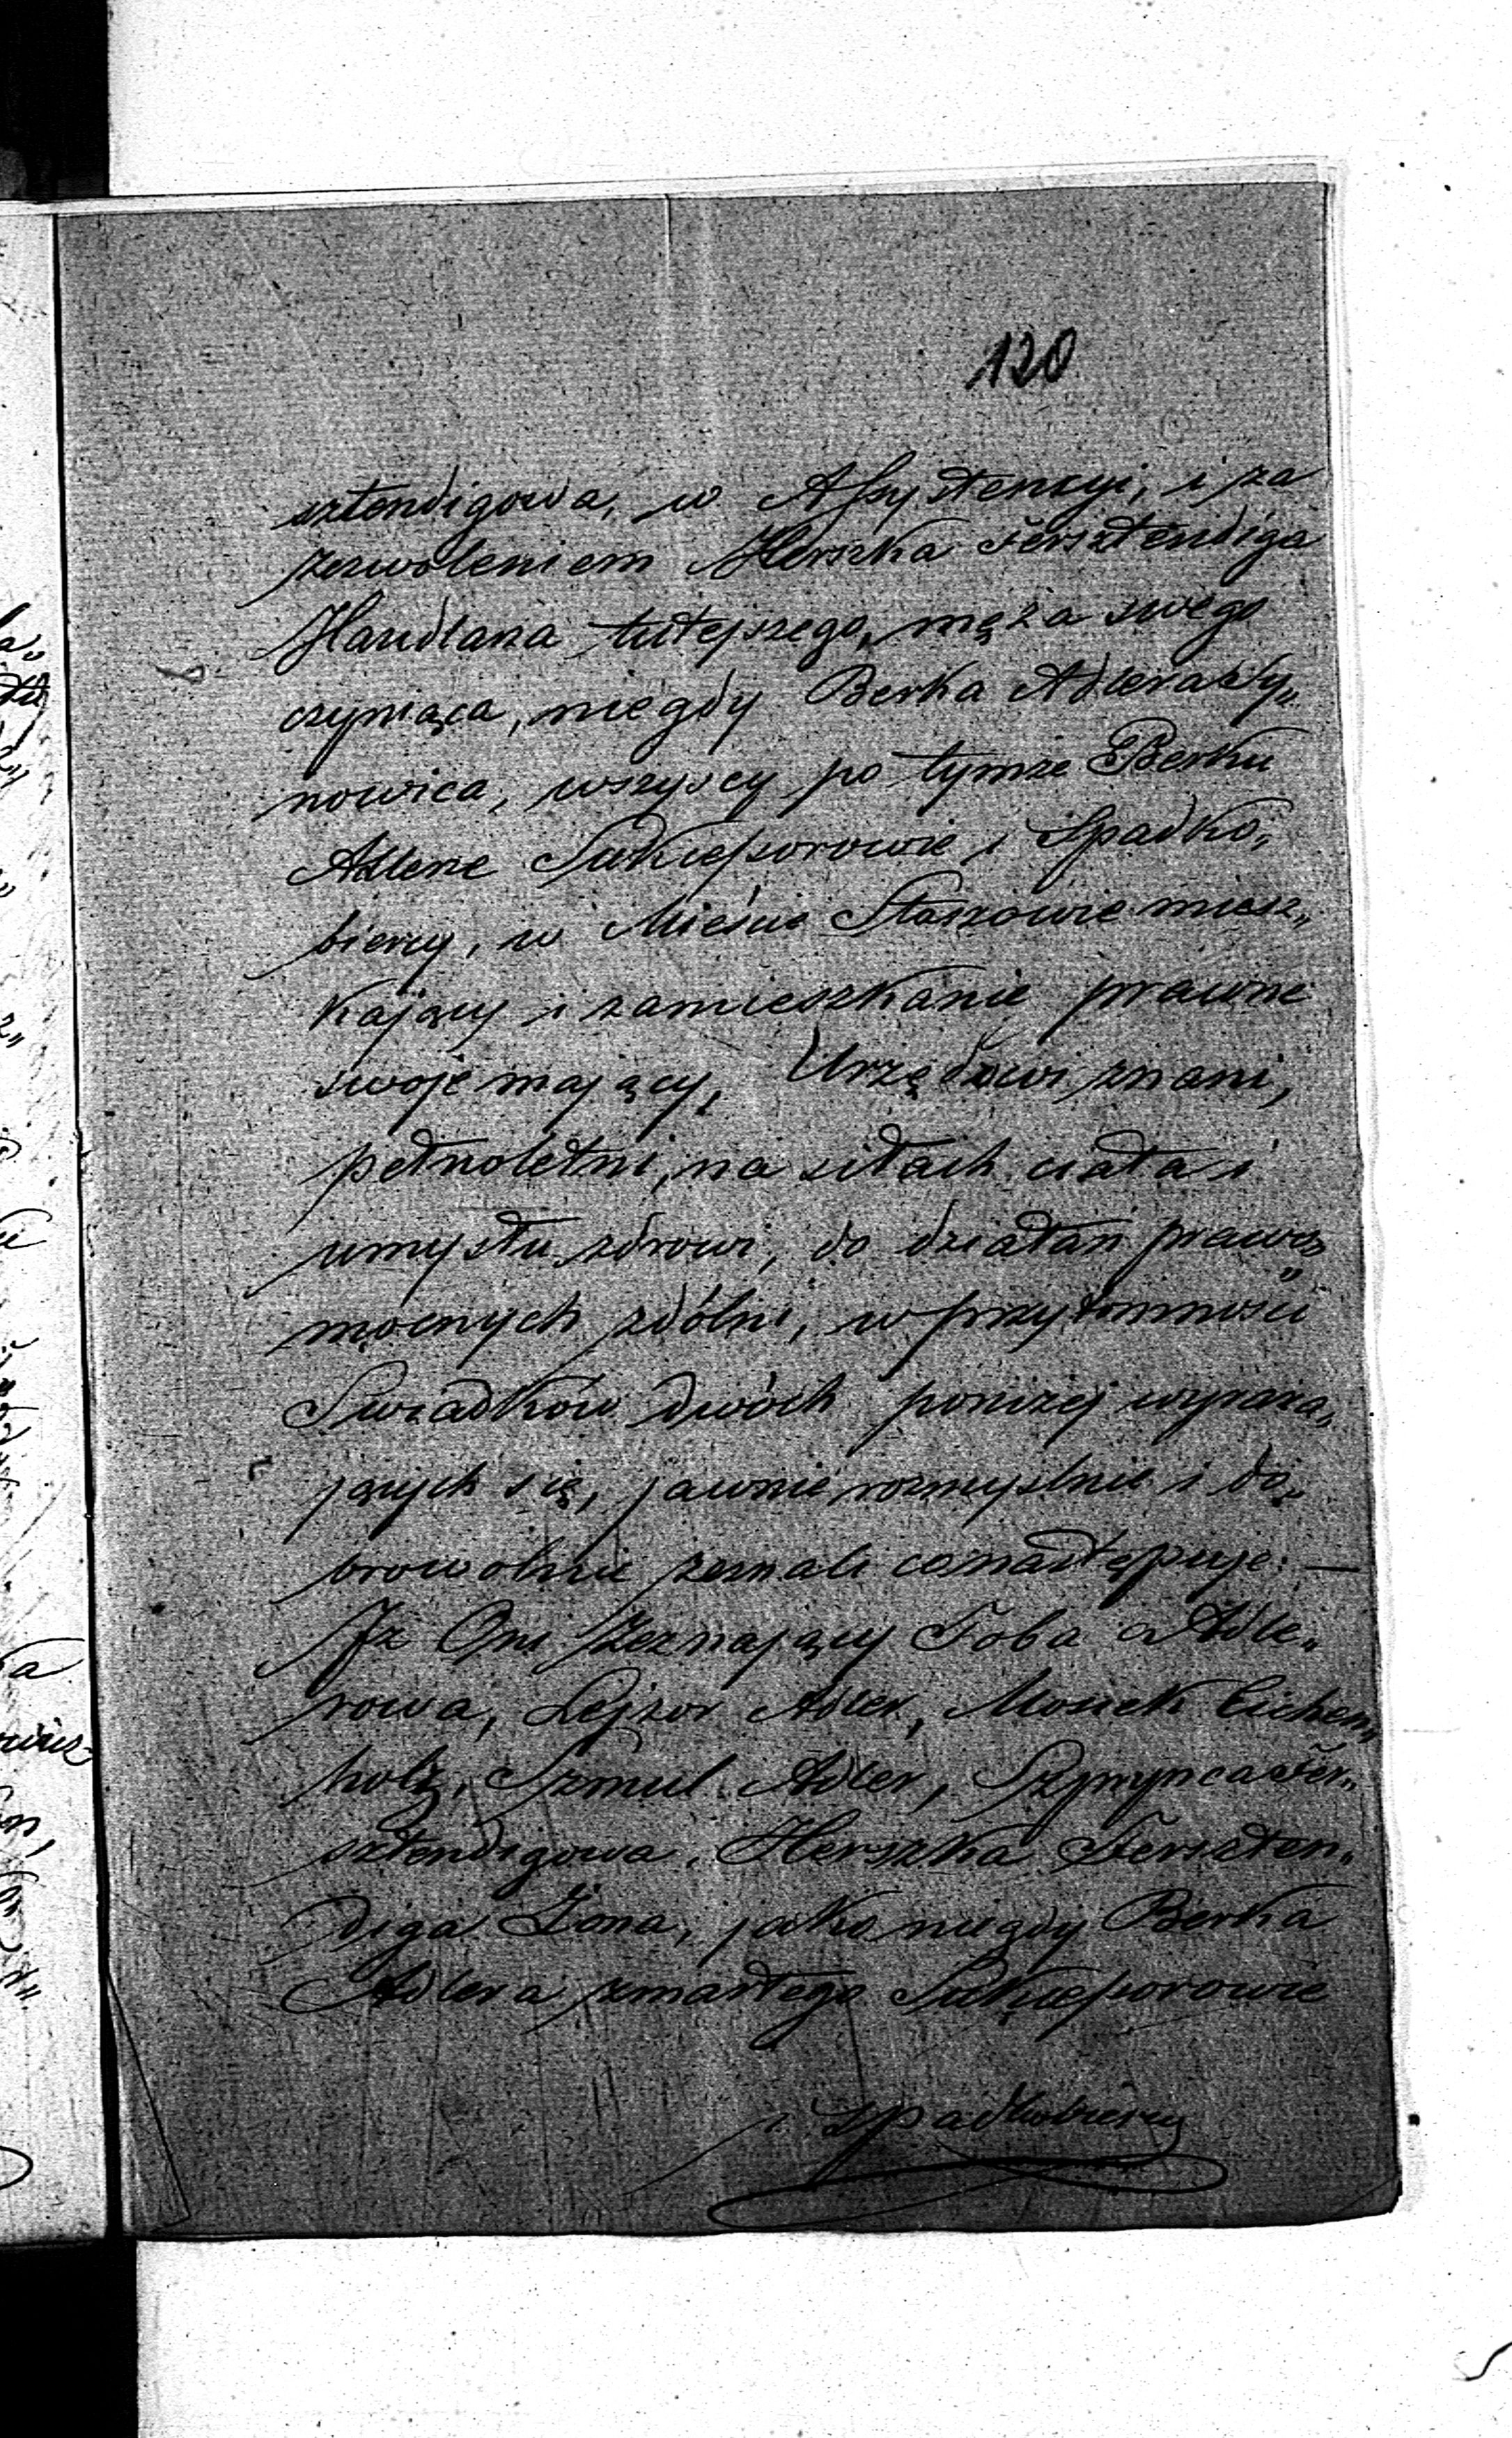 120
sztendigowa, w Assystencyi, i za
zezwoleniem Herszka Fersztendiga
Handlarza tutejszego, męża swego
czyniąca, niegdy Berka Adlera Sy„
nowica, wszyscy po tymże Berku
Adlerze Sukcessorowie i Spadko„
biercy, w Mieście Staszowie miesz„
kający i zamieszkanie prawne
swoje mający, Urzędowi znani,
pełnoletni, na siłach ciała i
umysłu zdrowi, do działań prawo„
mocnych zdólni, w przytomności
Swiadków dwóch poniżej wyraża„
jących się, jawnie rozmyslnie i do„
browolnie zeznali co następuje: —
Iż Oni Zeznający Toba Adle„
rowa, Lejzor Adler, Mosiek Eichen„
holz, Szmul Adler, Szprynca Fer„
sztendigowa, Herszka Ferszten„
diga Żona, jako niegdy Berka
Adlera zmarłego Sukcessorowie
i Spadkobiercy